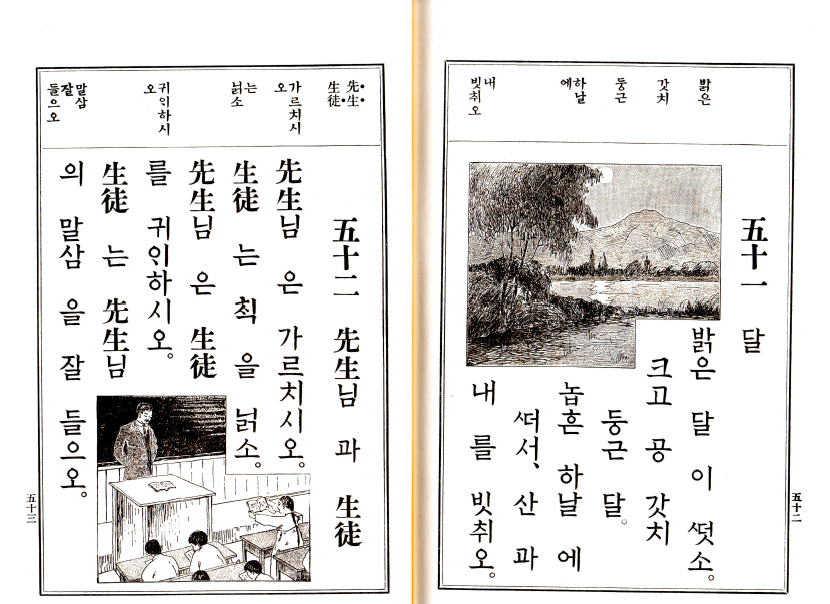 밝은
갓치
둥근
하날
에
내
빗취오
五十一 달
밝은 달 이 ᄯᅥᆺ소。
크고 공 갓치
둥근 달。
놉흔 하날 에
ᄯᅥ서、 산 과
내 를 빗취오。
五十二
先生
生徒
가르치시
오
는
닑소
귀ᄋᆡ하시
오
말삼
잘
들으오
五十二 先生님 과 生徒
先生님 은 가르치시오。
生徒 는 ᄎᆡᆨ 을 닑소。
先生님 은 生徒
를 귀ᄋᆡ하시오。
生徒 는 先生님
의 말삼 을 잘 들으오。
五十三